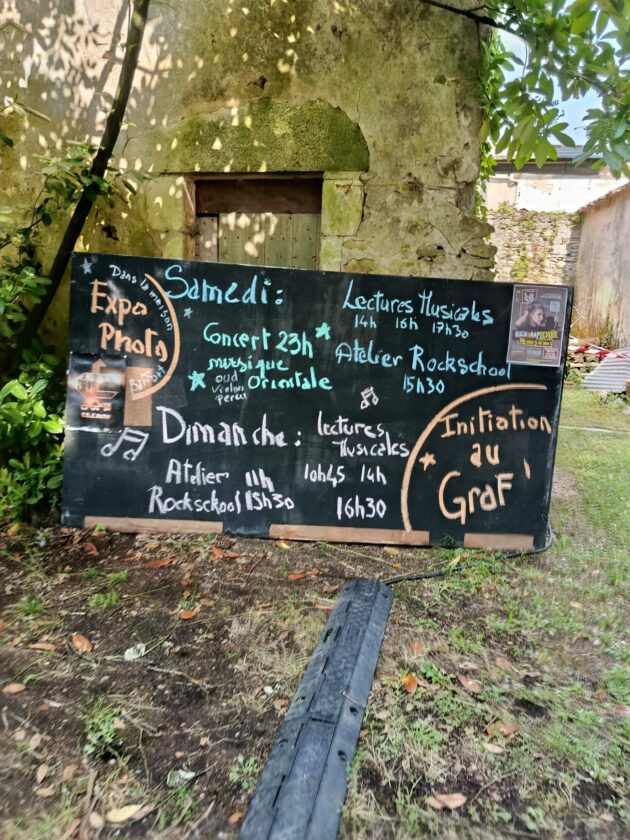 Dans la maison
Expo
Photo
Samedi:
Concert 23h
musique
oud Orientale
violon
percu
Lectures Musicales
14h 16h 17h30
Atelier Rockschool
15h30
ROCK&RAPSCHOOL
Dimanche:
lectures
Musicales
10h45 14h
16h30
Atelier 11h
Rockschool 15h30
Initiation
au
GraF'